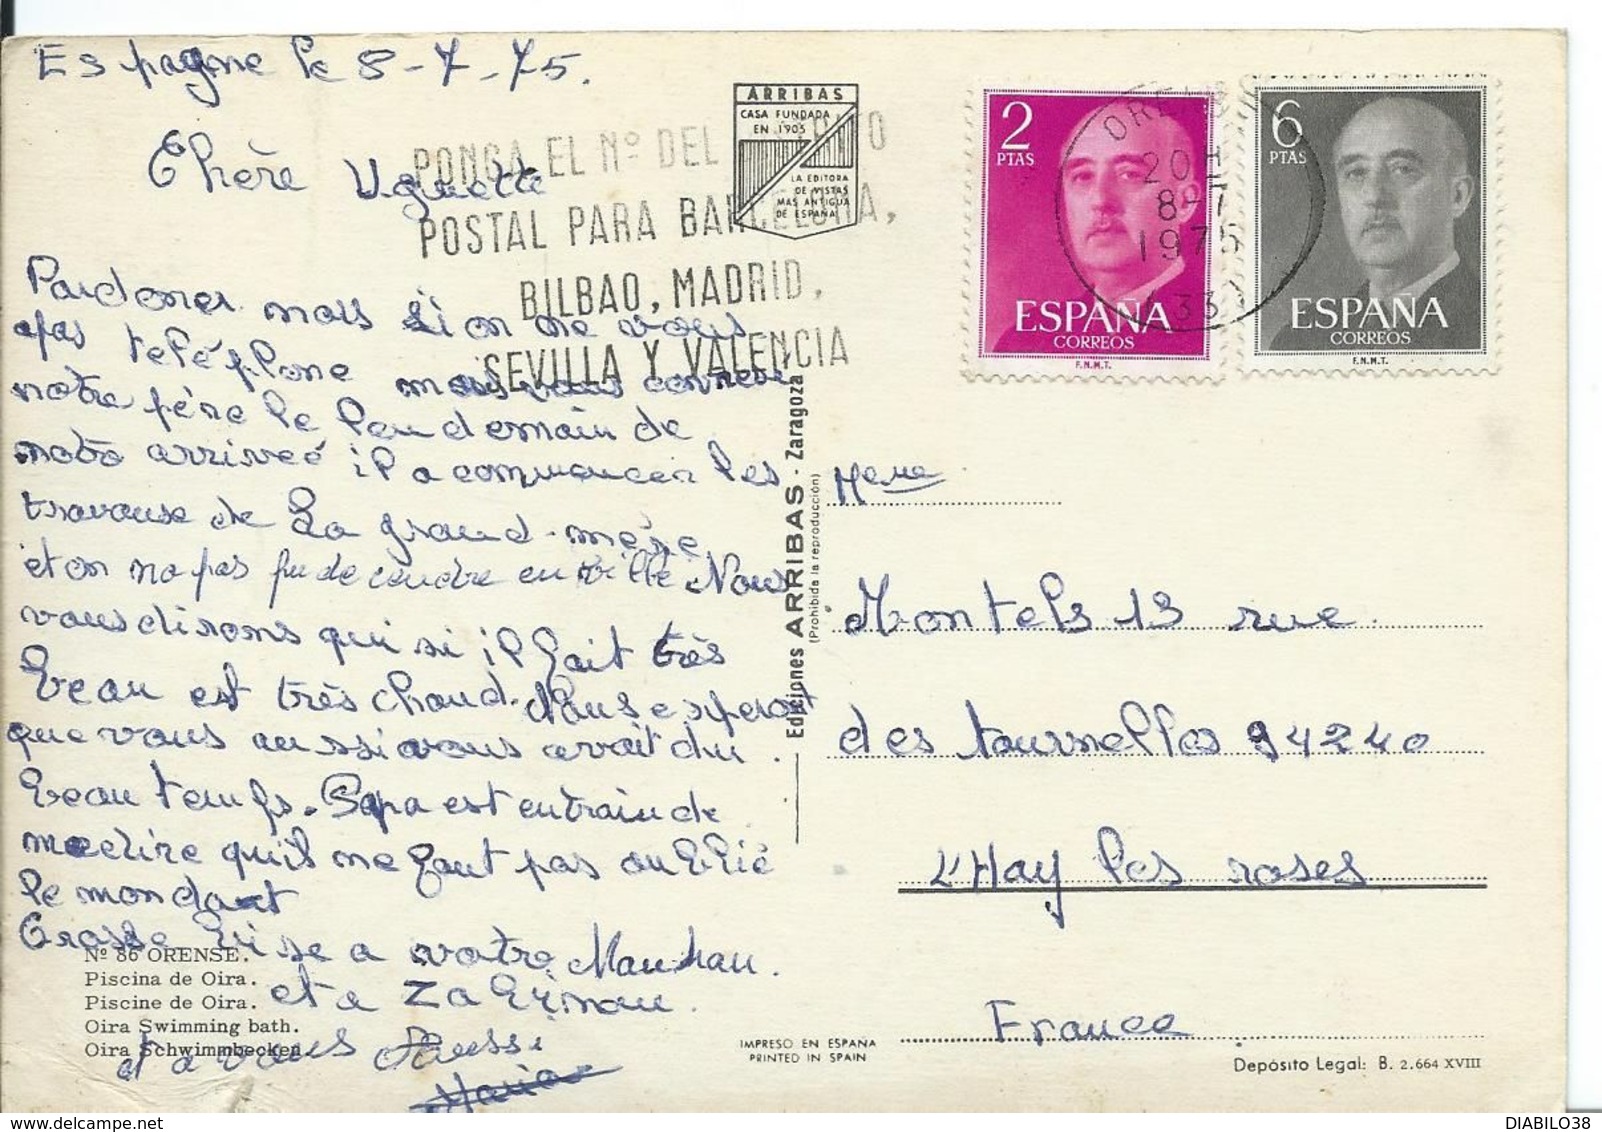 Espagne le 8-7-75.
Chère Uguette
Pardoner nous si on ne vous
pas teléphone mais vous connere
notre père le lendemain de
notre arriveé il a commencer les
travause de La grand-mère
et on na pas pu decendre en ville Nous
vous disons qui si il fait très
beau est très chaud. Nous esperont
que vous aussi avous avait du
beau temps. Papa est entrain de
me dire qu'il ne faut pas oublié
le mondat
Grosse bise a votre Manman.
et a
et a vous aussi
Maria
ARRIBAS
CASA FUNDADA
EN 1905
LA EDITORA
DE VISTAS
MAS ANTIGUA
DE ESPAÑA
PONGA EL Nº DEL
POSTAL PARA BARCELONA,
BILBAO, MADRID,
SEVILLA Y VALENCIA
2
PTAS
ESPAÑA
CORREOS
F.N.M.T.
6
PTAS
ESPAÑA
CORREOS
F.N.M.T.
ORENSE
20H
8-7
1975
(33)
Ediciones ARRIBAS - Zaragoza
(Prohibida la reproducción)
Meme
Montels 13 rue
des tournelles 94240
L'Hay les roses
France
Nº 86 ORENSE.
Piscina de Oira.
Piscine de Oira.
Oira Swimming bath.
Oira Schwimmbecken
IMPRESO EN ESPAÑA
PRINTED IN SPAIN
Depósito Legal: B. 2.664 XVIII
DIABILO38